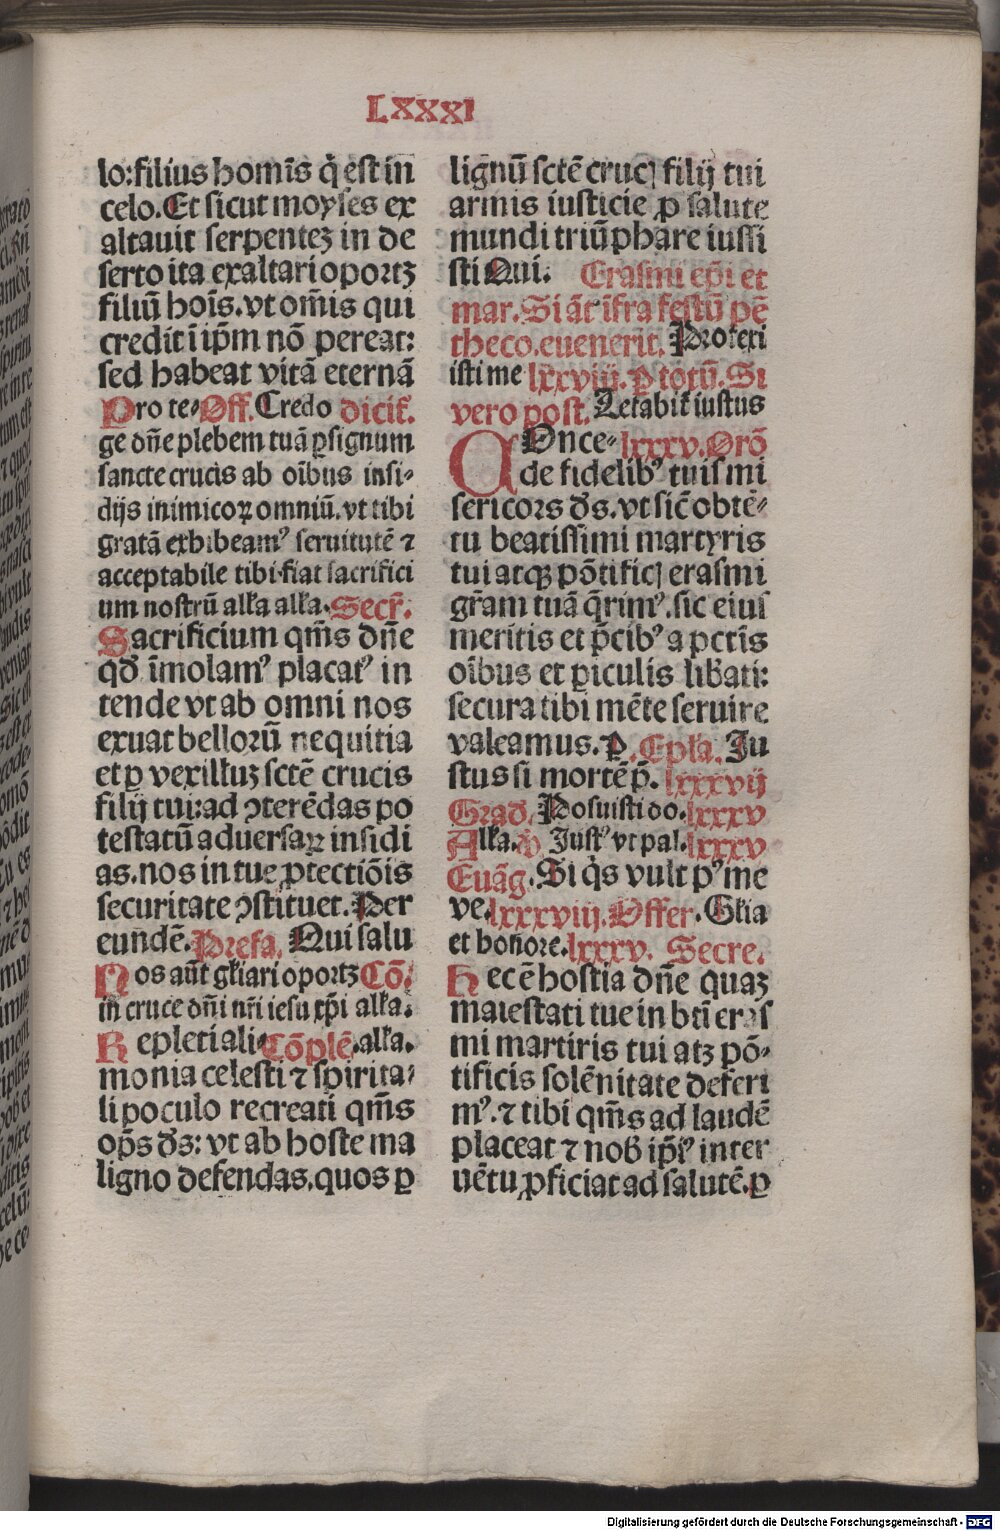 LXXXI
lo: filius homīs q̇ est in
celo. Et sicut moyses ex
altauit serpenteꝫ in de
serto ita exaltari oportꝫ
filiū hoīs. vt om̄is qui
credit ī ip̄m nō pereat:
sed habeat vitā eternā
Pro te⸗ Off. Credo dicit̄.
ge dn̄e plebem tuā ꝑ signum
sancte crucis ab oībus insi⸗
dijs inimicoꝝ omniū. vt tibi
gratā exhibeamꝰ seruitutē ⁊
acceptabile tibi fiat sacrifici
um nostrū alła alła. Secr̄.
Sacrificium qm̄s dn̄e
qḋ īmolamꝰ placatꝰ in
tende vt ab omni nos
exuat bellorū nequitia
et ꝑ vexilłuꝫ sctē crucis
filij tui: ad ꝯterēdas po
testatū aduersaꝝ insidi
as. nos in tue ꝓtectiōis
securitate ꝯstituet. Per
eundē. Prefa. Qui salu
Nos aūt głiari oportꝫ Cō.
in cruce dn̄i nr̄i iesu xp̄i alła.
Repleti ali⸗ Cōplē. alła.
monia celesti ⁊ spirita⸗
li poculo recreati qm̄s
op̄s ds̄: vt ab hoste ma
ligno defendas. quos ꝑ
lignū sctē crucꝭ filij tui
armis iusticie ꝓ salute
mundi triūphare iussi
sti Qui. Erasmi ep̄i et
mar. Si āt īfra festū pē
theco. euenerit. Protexi
isti me lxxviij. ꝑ totū. Si
vero post. Letabit̄ iustus
COnce⸗ lxxxv. Orō
de fidelibꝰ tuis mi
sericors ds̄. vt sic̄ obtē⸗
tu beatissimi martyris
tui atqꝫ pōtificꝭ erasmi
gr̄am tuā q̄rimꝰ. sic eius
meritis et p̄cibꝰ a pctīs
oībus et ꝑiculis lib̄ati:
secura tibi mēte seruire
valeamus. P. Epła. Iu
stus si mortē p̄. lxxxvij
Grad. Posuisti do. lxxxv
Alła. ꝟ Justꝰ vt pal. lxxxv
Euāg. Si q̇s vult pꝰ me
ve. lxxxviij. Offer. Głia
et honore. lxxxv. Secre.
Hec ē hostia dn̄e quaꝫ
maiestati tue in bti eras
mi martiris tui atꝫ pō⸗
tificis solēnitate deferi
mꝰ. ⁊ tibi qm̄s ad laudē
placeat ⁊ nob̄ ip̄iꝰ inter
uētu ꝓficiat ad salutē. ꝑ
Digitalisierung gefördert durch die Deutsche Forschungsgemeinschaft - DFG